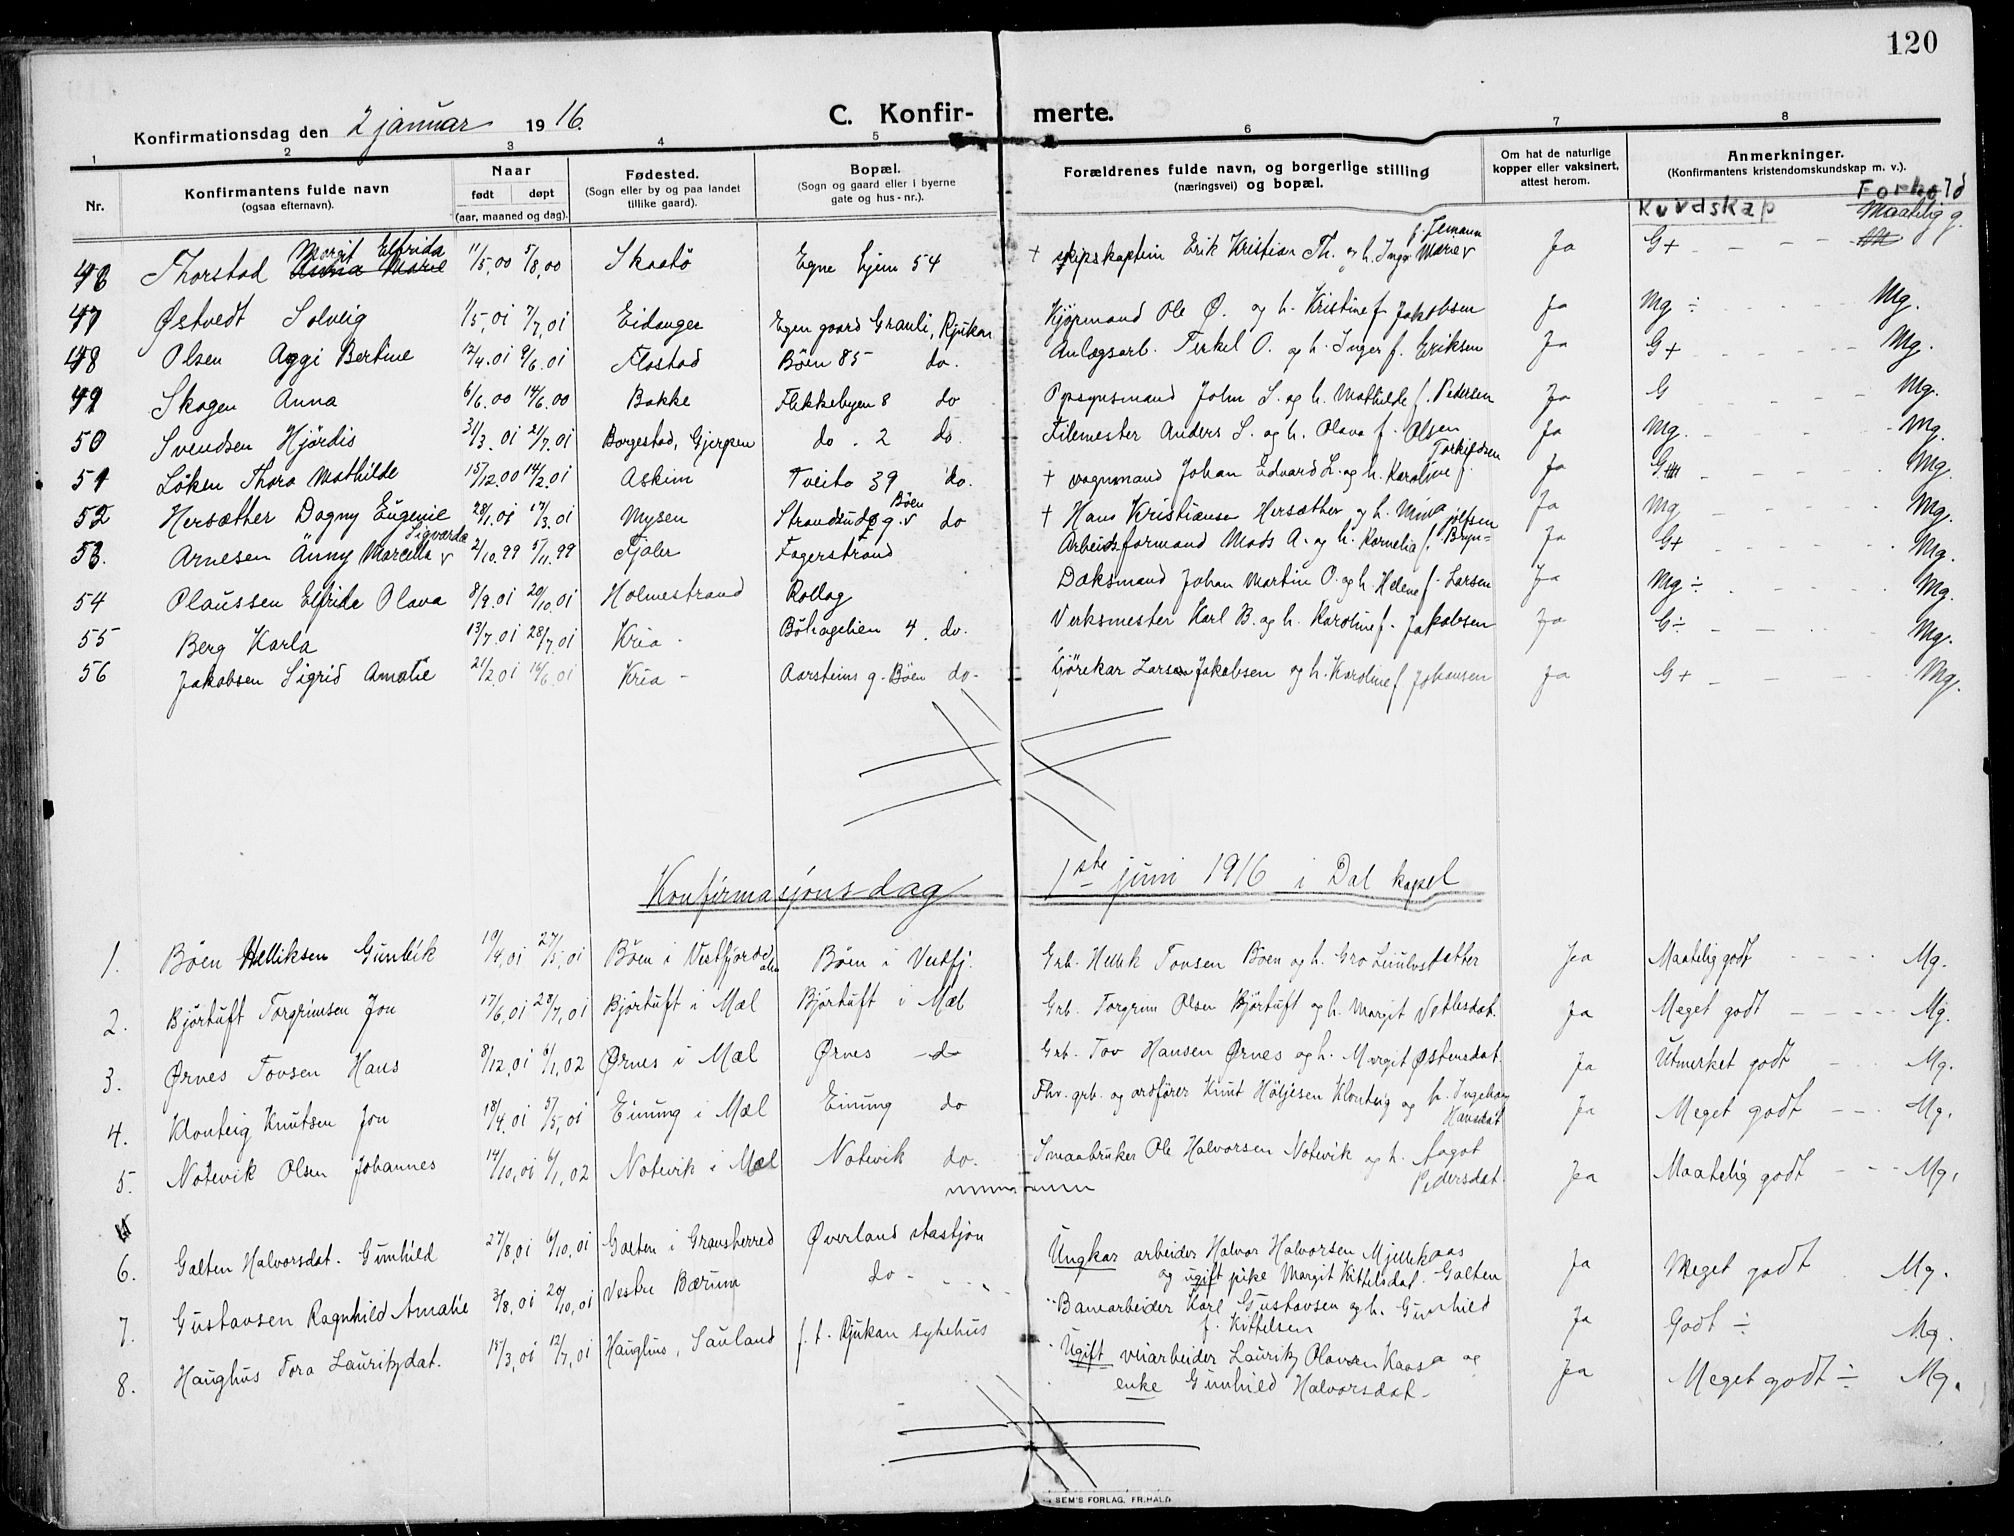 120
Konfirmationsdag den 2 januar 1916. C. Konfirmerte.
1 2 3 4 5 6 7 8
Nr. Konfirmantens fulde navn (ogsaa efternavn). Naar født døpt (aar, maaned og dag). Fødested. (Sogn eller by og paa landet tillike gaard). Bopæl. (Sogn og gaard eller i byerne gate og hus-nr.). Forældrenes fulde navn, og borgerlige stilling (næringsvei) og bopæl. Om hat de naturlige kopper eller vaksinert, attest herom. Anmerkninger. (Konfirmantens kristendomskundskap m. v.).
Kundskap Forhold
46 Thorstad Margit Elfrida Anna Marie 11/5,00 5/8,00 Skaatö Egne hjem 54 + skipskaptein Erik Kristian Th. og h. Inga Marie f. Jemann Ja G+ Maatelig g.
47 Østvedt Solveig 11/5,01 7/7,01 Eidanger Egen gaard Granli, Rjukan Kjørmand Ole Ø. og h. Kristine f. Jakobsen Ja Mg ÷ Mg.
48 Olsen Aggi Bertine 12/4.01 9/6.01 Flostad Böen 85 do. Anlægsarb. Terkel O. og h. Inger f. Eriksen Ja G+ Mg.
49 Skogen Anna 6/6.00 14/6.00 Bakke Flekkebyen 8 do Opsynsmand John S. og h. Mathilde f. Pedersen Ja G Mg.
50 Svendsen Hjördis 31/3.01 21/7.01 Borgestad, Gjerpen do. 2 do. Filemester Anders S. og h. Olava f. Olsen Ja Mg. Mg.
51 Löken Thora Mathilde 15/12.00 14/2.01 Askim Tveito 39 do. + vognmand Johan Edvard L. og h. Karoline f. Torkildsen Ja G Mg.
52 Hersæther Dagny Eugenie 28/1.01 17/3.01 Mysen Strandsudg. Böen do + Hans Kristiansen Hersæther og h. Mina Ja Mg Mg.
53. Arnesen Änny Marcella Sigvarda 2/10.99 5/11.99 Fjäler Fagerstrand Arbeidsformand Mads A. og h. Kornelia f. Brynjolfsen Ja G+ Mg.
54 Olaussen Elfrida Olava 8/9.01 20/10.01 Holmestrand Rollag Daksmand Johan Martin O. og h. Helene f. Larsen Ja Mg ÷ Mg.
55 Berg Karla 13/7.01 28/7.01 Kria. Böhagelien 4. do. Verksmester Karl B. og h. Karoline f. Jakobsen Ja G÷ Mg.
56 Jakobsen Sigrid Amalie 21/2.01 16/6.01 Kria Aarsteins g. Böen do. Kjörekar Lars Jakobsen og h. Karoline f. Johansen Ja G+ Mg.
Konfirmasjonsdag 1ste juni 1916 i Dal kapel
1. Böen Helliksen Gunleik 19/4,01 27/5,01 Böen i Vestfjorddalen Böen i Vestfj. Grb. Hellek Tovsen Böen og h. Gro Leiulvsdatter Ja Maatelig godt Mg.
2. Björtuft Torgrimsen Jon 17/6,01 28/7,01 Björtuft i Mæl Björtuft i Mæl Grb. Torgrim Olsen Björtuft og h. Margit Vetlesdat. Ja Meget godt Mg.
3. Ørnes Tovsen Hans 8/12,01 6/1,02 Ørnes i Mæl Ørnes do Grb. Tov Hansen Ørnes og h. Margit Østensdat. Ja Utmerket godt Mg.
4. Klonteig Knutsen Jon 18/4.01 5/5,01 Einung i Mæl Einung do Fhv. grb. og ordfører Knut Höljesen Klonteig og h. Ingeborg Hansdat Ja Meget godt Mg.
5. Notevik Olsen Johannes 14/10,01 6/1,02 Notevik i Mæl Notevik do. Smaabruker Ole Halvorsen Notevik og h. Aagot Pedersdat. Ja Maatelig godt Mg.
6. Galten Halvorsdat. Gunhild 27/8,01 6/10,01 Galten i Gransherred Øverland stasjon Ungkar arbeider Halvor Halvorsen Mjellekaas og ugift pike Margit Kittelsdat. Galten Ja Meget godt Mg.
7. Gustavsen Ragnhild Amalie 3/8,01 20/10,01 Vestre Bærum do Banearbeider Karl Gustavsen og h. Gunhild f. Kittelsen Ja Godt ÷ Mg.
8. Haughus Tora Lauritzdat. 15/3,01 12/7,01 Haughus, Sauland f. t. Rjukan sykehus Ugift veiarbeider Lauritz Olavsen Kaasa og enke Gunhild Halvorsdat. Ja Meget godt ÷ Mg.
SEM'S FORLAG, FR.HALD